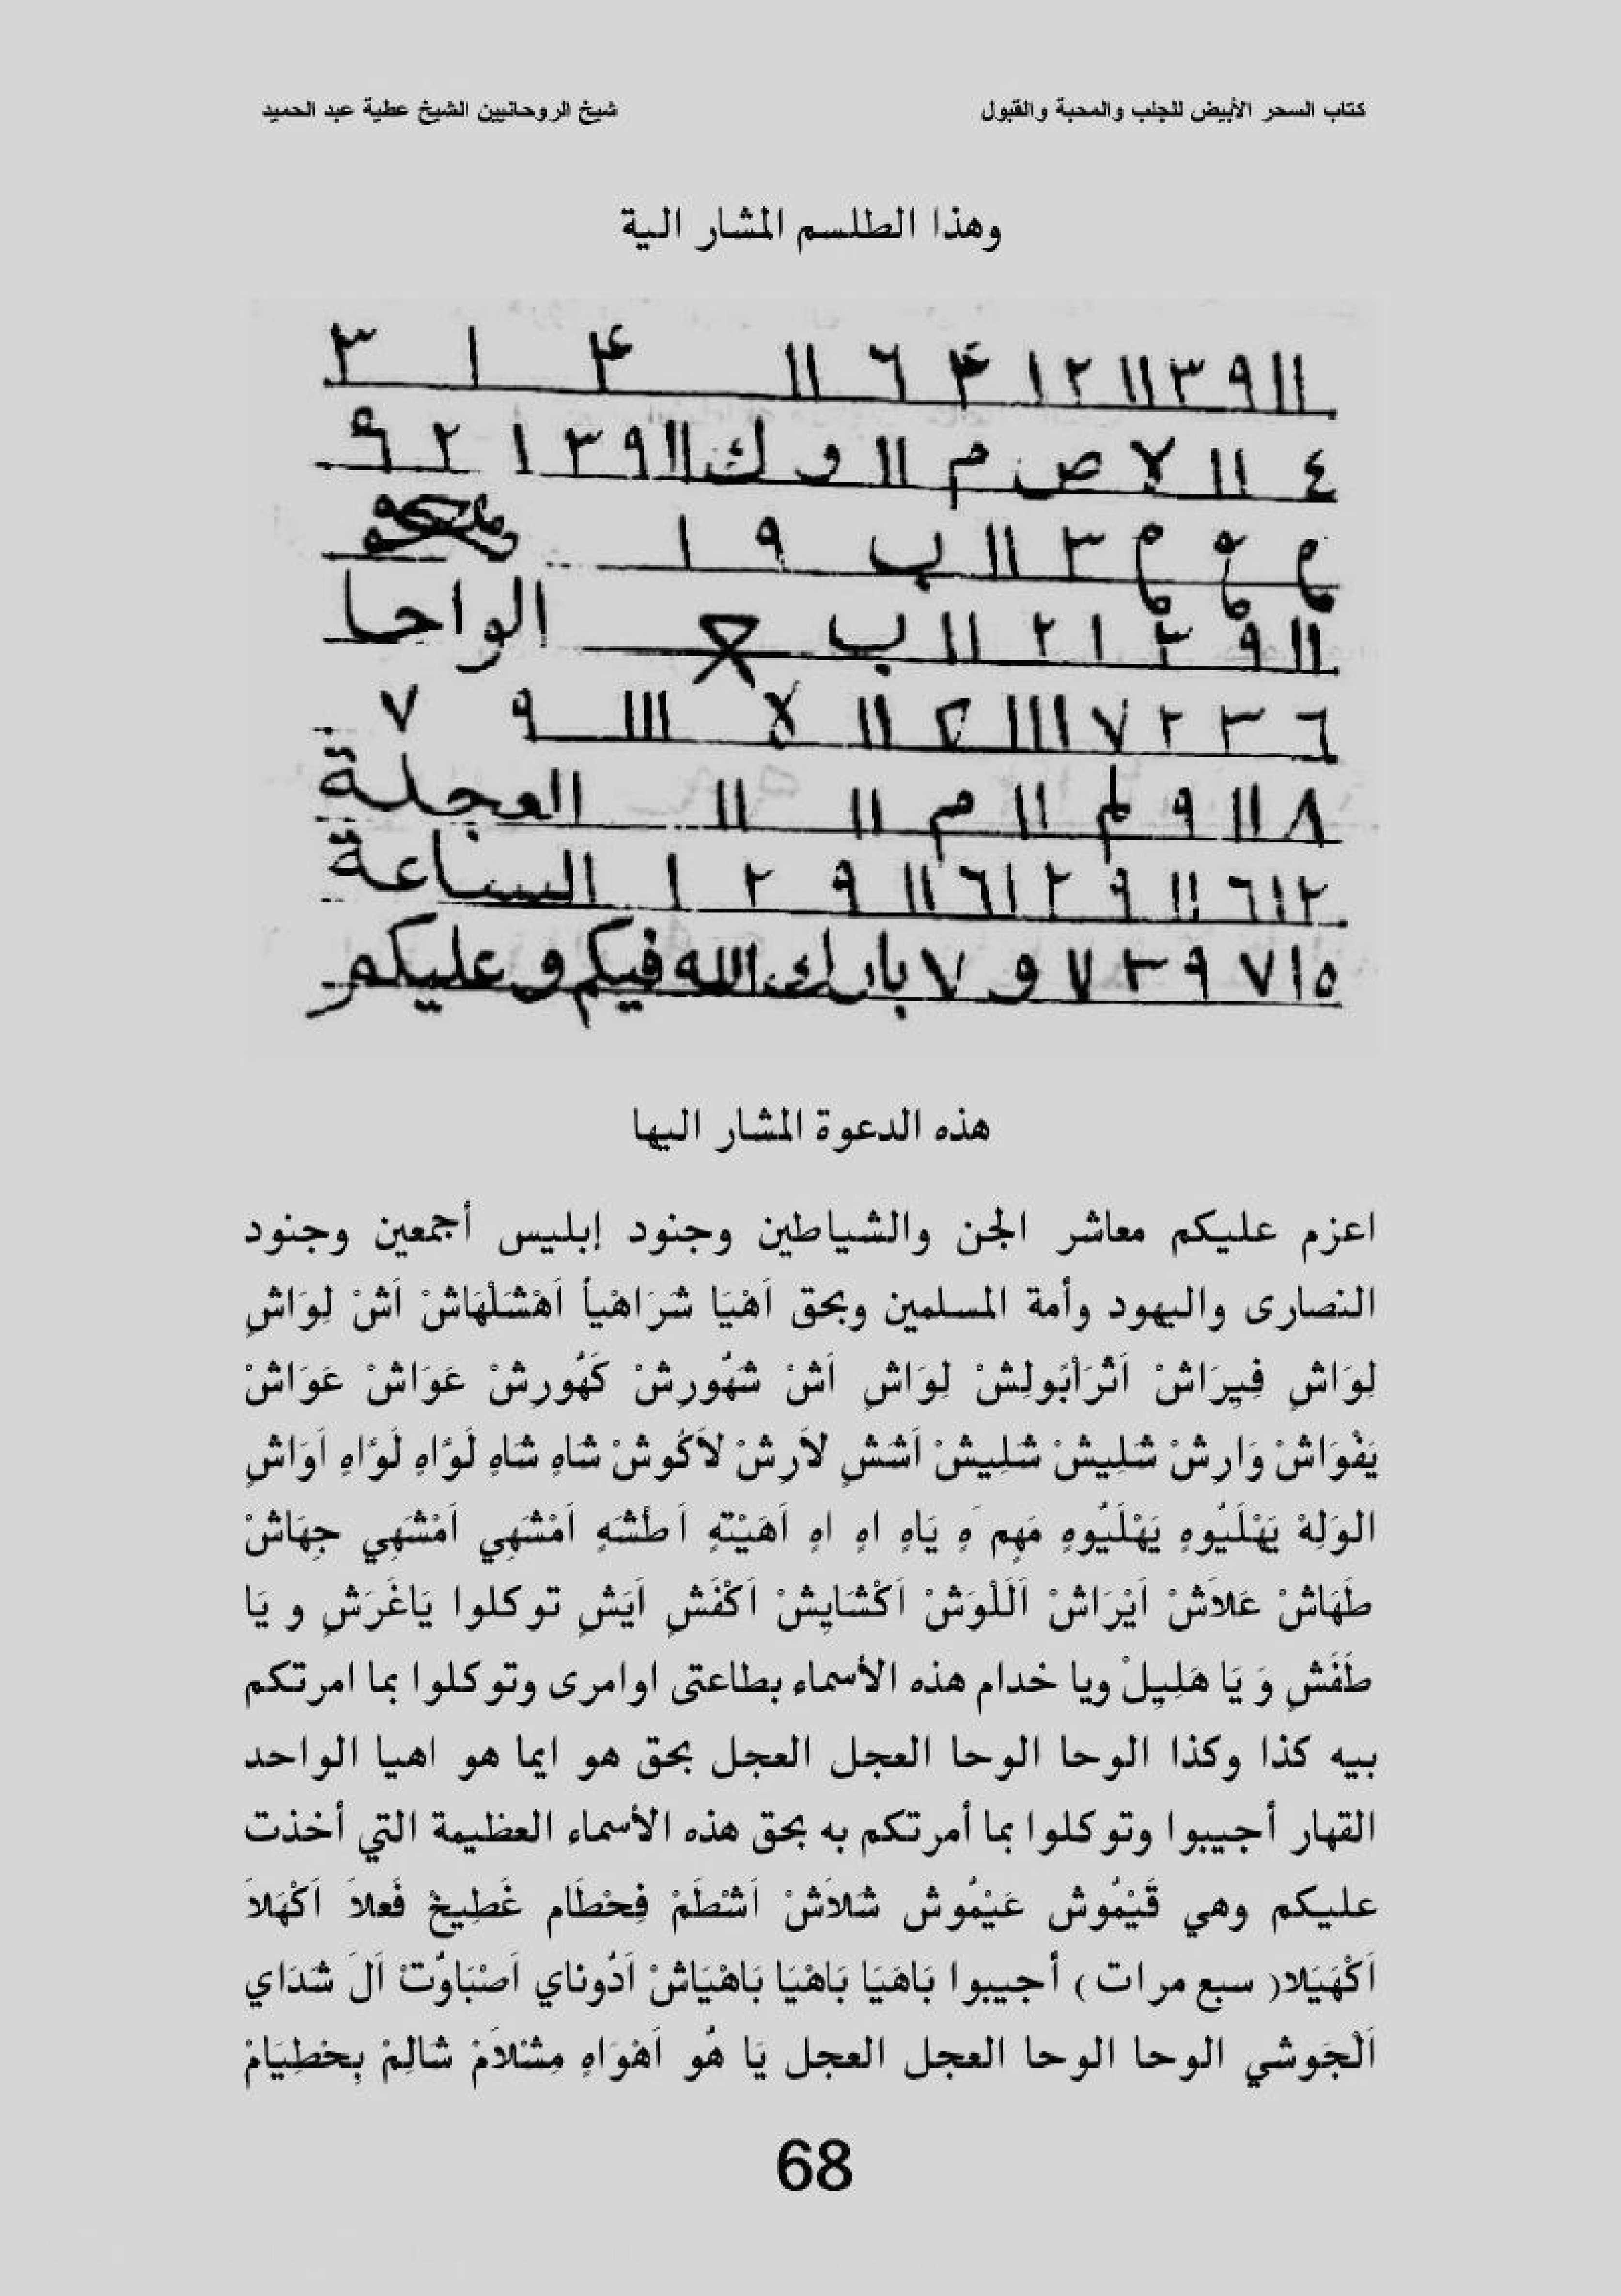 كتاب السحر الأبيض للجلب والمحبة والقبول
شيخ الروحانيين الشيخ عطية عبد الحميد
وهذا الطلسم المشار الية
١١ ٩ ٣ ١١ ٢ ١ ۴ ٦ ١١ ۴ ١ ٣
٤ ١١ لا ص م ١١ و ك ١١ ٩ ٣ ١ ٢
٣ ١١ ب ٩ ١
١١ ٩ ٣ ١ ٢ ١١ ب الواحا
٦ ٣ ٢ ٧ ١١١ ١١ لا ١١١ ٩ ٧
٨ ١١ ٩ لم ١١ م ١١ ١١ العجلة
٢ ١ ٦ ١١ ٩ ٢ ١ ٦ ١١ ٩ ٢ ١ الساعة
٥ ١ ٧ ٩ ٣ ٧ و ٧ بارك الله فيكم و عليكم
هذه الدعوة المشار اليها
اعزم عليكم معاشر الجن والشياطين وجنود إبليس أجمعين وجنود
النصارى واليهود وأمة المسلمين وبحق اَهْيَا شَرَاهْيأ اَهْشَلْهَاشْ اَشْ لِوَاشٍ
لِوَاشٍ فِيرَاشْ اَثْرَاْبُولِشْ لِوَاشٍ اَشْ شَهُورِشْ كَهُورِشْ عَوَاشْ عَوَاشْ
يَفْوَاشْ وَارِشْ شَلِيشْ شَلِيشْ اَشَشٍ لاَرِشْ لاَكُوشْ شَاهٍ شَاهٍ لَوَّاهٍ لَوَّاهٍ اَوَاشٍ
الوَلِهْ يَهْلَيُوهٍ يَهْلَيُوهٍ مَهِمَ هٍ يَاهٍ اهٍ اهٍ اَهَيْتهٍ اَطْشَهٍ اَمْشَهِي اَمْشَهِي جِهَاشْ
طَهَاشْ عَلاَشْ اَيْرَاشْ اَلَلْوَشْ اَكْشَايِشْ اَكْفَشٍ اَيَشٍ توكلوا يَاغَرَشٍ و يَا
طَفَشٍ وَ يَا هَلِيلْ ويا خدام هذه الأسماء بطاعتى اوامرى وتوكلوا بما امرتكم
بيه كذا وكذا الوحا الوحا العجل العجل بحق هو ايما هو اهيا الواحد
القهار أجيبوا وتوكلوا بما أمرتكم به بحق هذه الأسماء العظيمة التي أخذت
عليكم وهي قَيْمُوش عَيْمُوش شَلاَشْ اَشْطَمْ فِحْطَام غَطِيخْ فَعلاَ اَكْهَلاَ
اَكْهَيَلا( سبع مرات ) أجيبوا بَاهَيَا بَاهْيَا بَاهْيَاشْ اَدُوناي اَصْبَاوُتْ اَلَ شَدَاي
اَلْجَوشي الوحا الوحا العجل العجل يَا هُو اَهْوَاهٍ مِشْلاَمْ شَالِمْ بِخْطِيَامْ
68